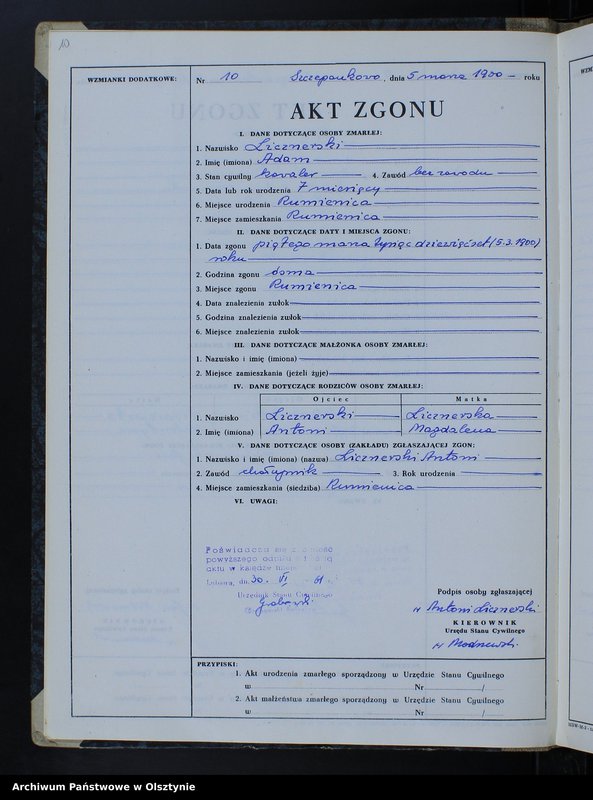 10
WZMIANKI DODATKOWE:
Nr 10 Szczepankowo, dnia 5 marca 1900 - roku
AKT ZGONU
I. DANE DOTYCZĄCE OSOBY ZMARŁEJ:
1. Nazwisko Licznerski
2. Imię (imiona) Adam
3. Stan cywilny kawaler 4. Zawód bez zawodu
5. Data lub rok urodzenia 7 miesięcy
6. Miejsce urodzenia Rumienica
7. Miejsce zamieszkania Rumienica
II. DANE DOTYCZĄCE DATY I MIEJSCA ZGONU:
1. Data zgonu piątego marca tysiąc dziewięćset (5.3.1900)
roku
2. Godzina zgonu ósma
3. Miejsce zgonu Rumienica
4. Data znalezienia zwłok
5. Godzina znalezienia zwłok
6. Miejsce znalezienia zwłok
III. DANE DOTYCZĄCE MAŁŻONKA OSOBY ZMARŁEJ:
1. Nazwisko i imię (imiona)
2. Miejsce zamieszkania (jeżeli żyje)
IV. DANE DOTYCZĄCE RODZICÓW OSOBY ZMARŁEJ:
Ojciec Matka
1. Nazwisko Licznerski Licznerska
2. Imię (imiona) Antoni Magdalena
V. DANE DOTYCZĄCE OSOBY (ZAKŁADU) ZGŁASZAJĄCEJ ZGON:
1. Nazwisko i imię (imiona) (nazwa) Licznerski Antoni
2. Zawód chałupnik 3. Rok urodzenia
4. Miejsce zamieszkania (siedziba) Rumienica
VI. UWAGI:
Poświadcza się zgodność
powyższego odpisu z treścią
aktu w księdze
Lubawa, dn. 30. VI 61 r.
Urzędnik Stanu Cywilnego
Podpis osoby zgłaszającej
Antoni Licznerski
KIEROWNIK
Urzędu Stanu Cywilnego
PRZYPISKI:
1. Akt urodzenia zmarłego sporządzony w Urzędzie Stanu Cywilnego
w Nr /
2. Akt małżeństwa zmarłego sporządzony w Urzędzie Stanu Cywilnego
w Nr /
Archiwum Państwowe w Olsztynie